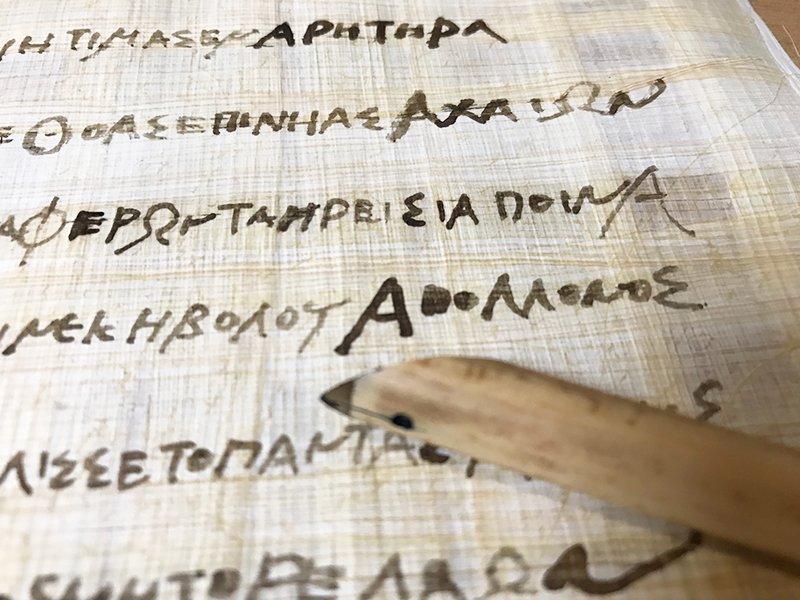 ΝΗΤΙΜΑΣΕΝ ΑΡΗΤΗΡΑ
ΕΘΟΑΣΕΠΙΝΗΑΣ ΑΧΑΙΩΝ
ΑΦΕΡΩΝΤΑΗΡΕΙΣΙΑ ΠΟΙΝΑ
ΙΝΕΚΗΒΟΛΟΥ ΑΠΟΛΛΟΝΟΣ
ΛΙΣΣΕΤΟΠΑΝΤΑΣ
ΟΣΜΗΤΟΡΕΛΑΩΝ